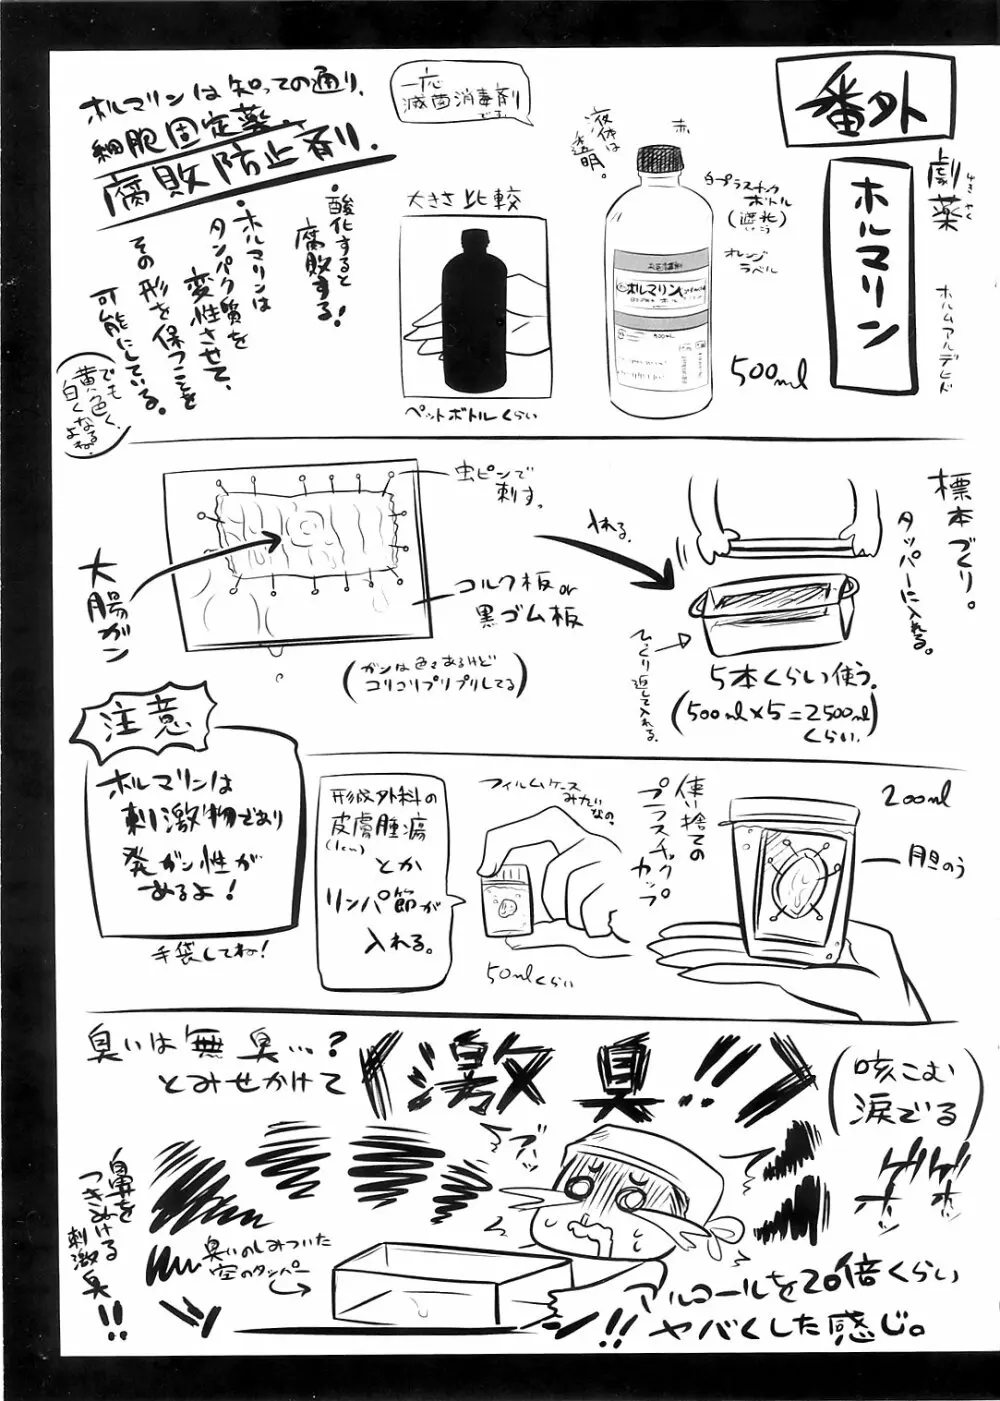 番外
劇薬
げきやく
ホルマリン
ホルムアルデヒド
赤
液体は
透明。
白プラスチック
ボトル
(遮光)
しゃこう
オレンジ
ラベル
ホルマリン
500ml
一応
滅菌消毒剤
です
大きさ比較
ペットボトルくらい
ホルマリンは知っての通り、
細胞固定薬、
腐敗防止剤。
・酸化すると
腐敗する!
・ホルマリンは
タンパク質を
変性させて、
その形を保つことを
可能にしている。
(でも
黄色く、
白くなる
よね。)
標本づくり。
タッパーに入れる。
入れる。
ひっくり返して入れる。
5本くらい使う。
(500ml×5=2500ml)
くらい。
虫ピンで
刺す。
コルク板or
黒ゴム板
大腸ガン
(ガンは色々あるけど
コリコリプリプリしてる)
注意
ホルマリンは
刺激物であり
発ガン性が
あるよ!
手袋してね!
200ml
胆のう
使い捨ての
プラスチック
カップ
フィルムケース
みたいなの。
50mlくらい
形成外科の
皮膚腫瘍
(1cm)
とか
リンパ節が
入れる。
臭いは無臭…?
とみせかけて
《激臭!!》
(咳こむ
涙でる)
ゲホ
ゲホ
ブッ
鼻を
つきぬける
刺激臭
!!
臭いのしみついた
空のタッパー
ツーン!!
アルコールを20倍くらい
ヤバくした感じ。